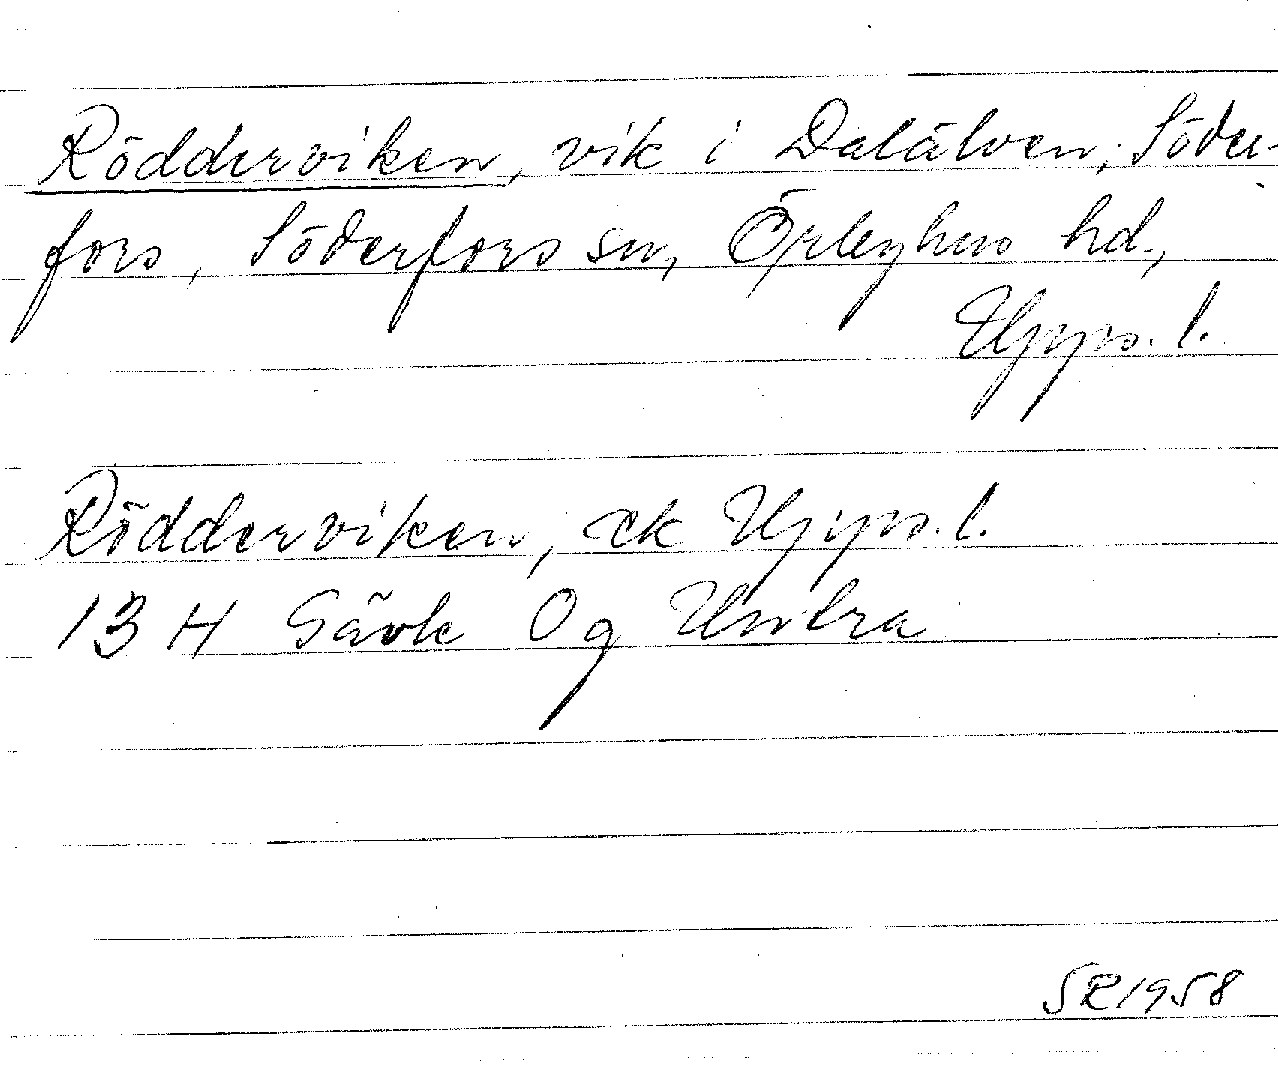 Rödderviken, vik i Dalälven, Söder-
fors, Söderfors sn, Örbyhus hd,
Upps. l.
Rödderviken, ek Upps. l.
13 H Gävle Og Untra
SR 1958